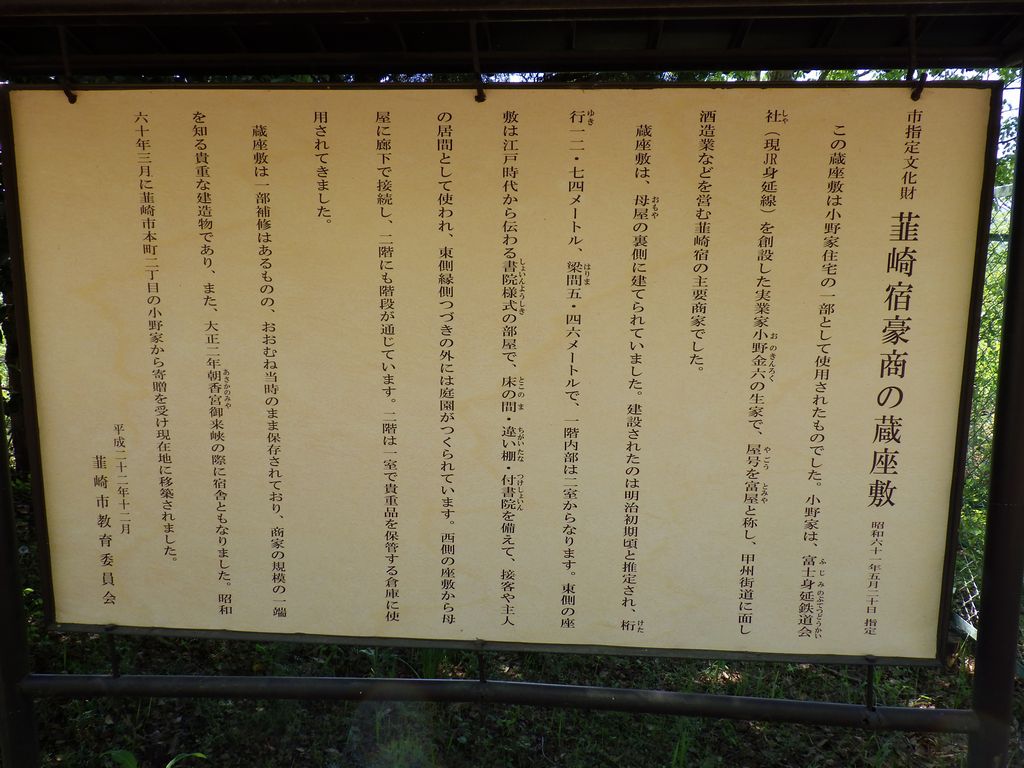 市指定文化財 韮崎宿豪商の蔵座敷 昭和六十一年五月二十日 指定
この蔵座敷は小野家住宅の一部として使用されたものでした。小野家は、富士身延鉄道会
社（現JR身延線）を創設した実業家小野金六の生家で、屋号を富屋と称し、甲州街道に面し
酒造業などを営む韮崎宿の主要商家でした。
蔵座敷は、母屋の裏側に建てられていました。建設されたのは明治初期頃と推定され、桁
行一二・七四メートル、梁間五・四六メートルで、一階内部は二室からなります。東側の座
敷は江戸時代から伝わる書院様式の部屋で、床の間・違い棚・付書院を備えて、接客や主人
の居間として使われ、東側縁側つづきの外には庭園がつくられています。西側の座敷から母
屋に廊下で接続し、二階にも階段が通じています。二階は一室で貴重品を保管する倉庫に使
用されてきました。
蔵座敷は一部補修はあるものの、おおむね当時のまま保存されており、商家の規模の一端
を知る貴重な建造物であり、また、大正二年朝香宮御来峡の際に宿舎ともなりました。昭和
六十年三月に韮崎市本町二丁目の小野家から寄贈を受け現在地に移築されました。
平成二十二年十二月
韮崎市教育委員会